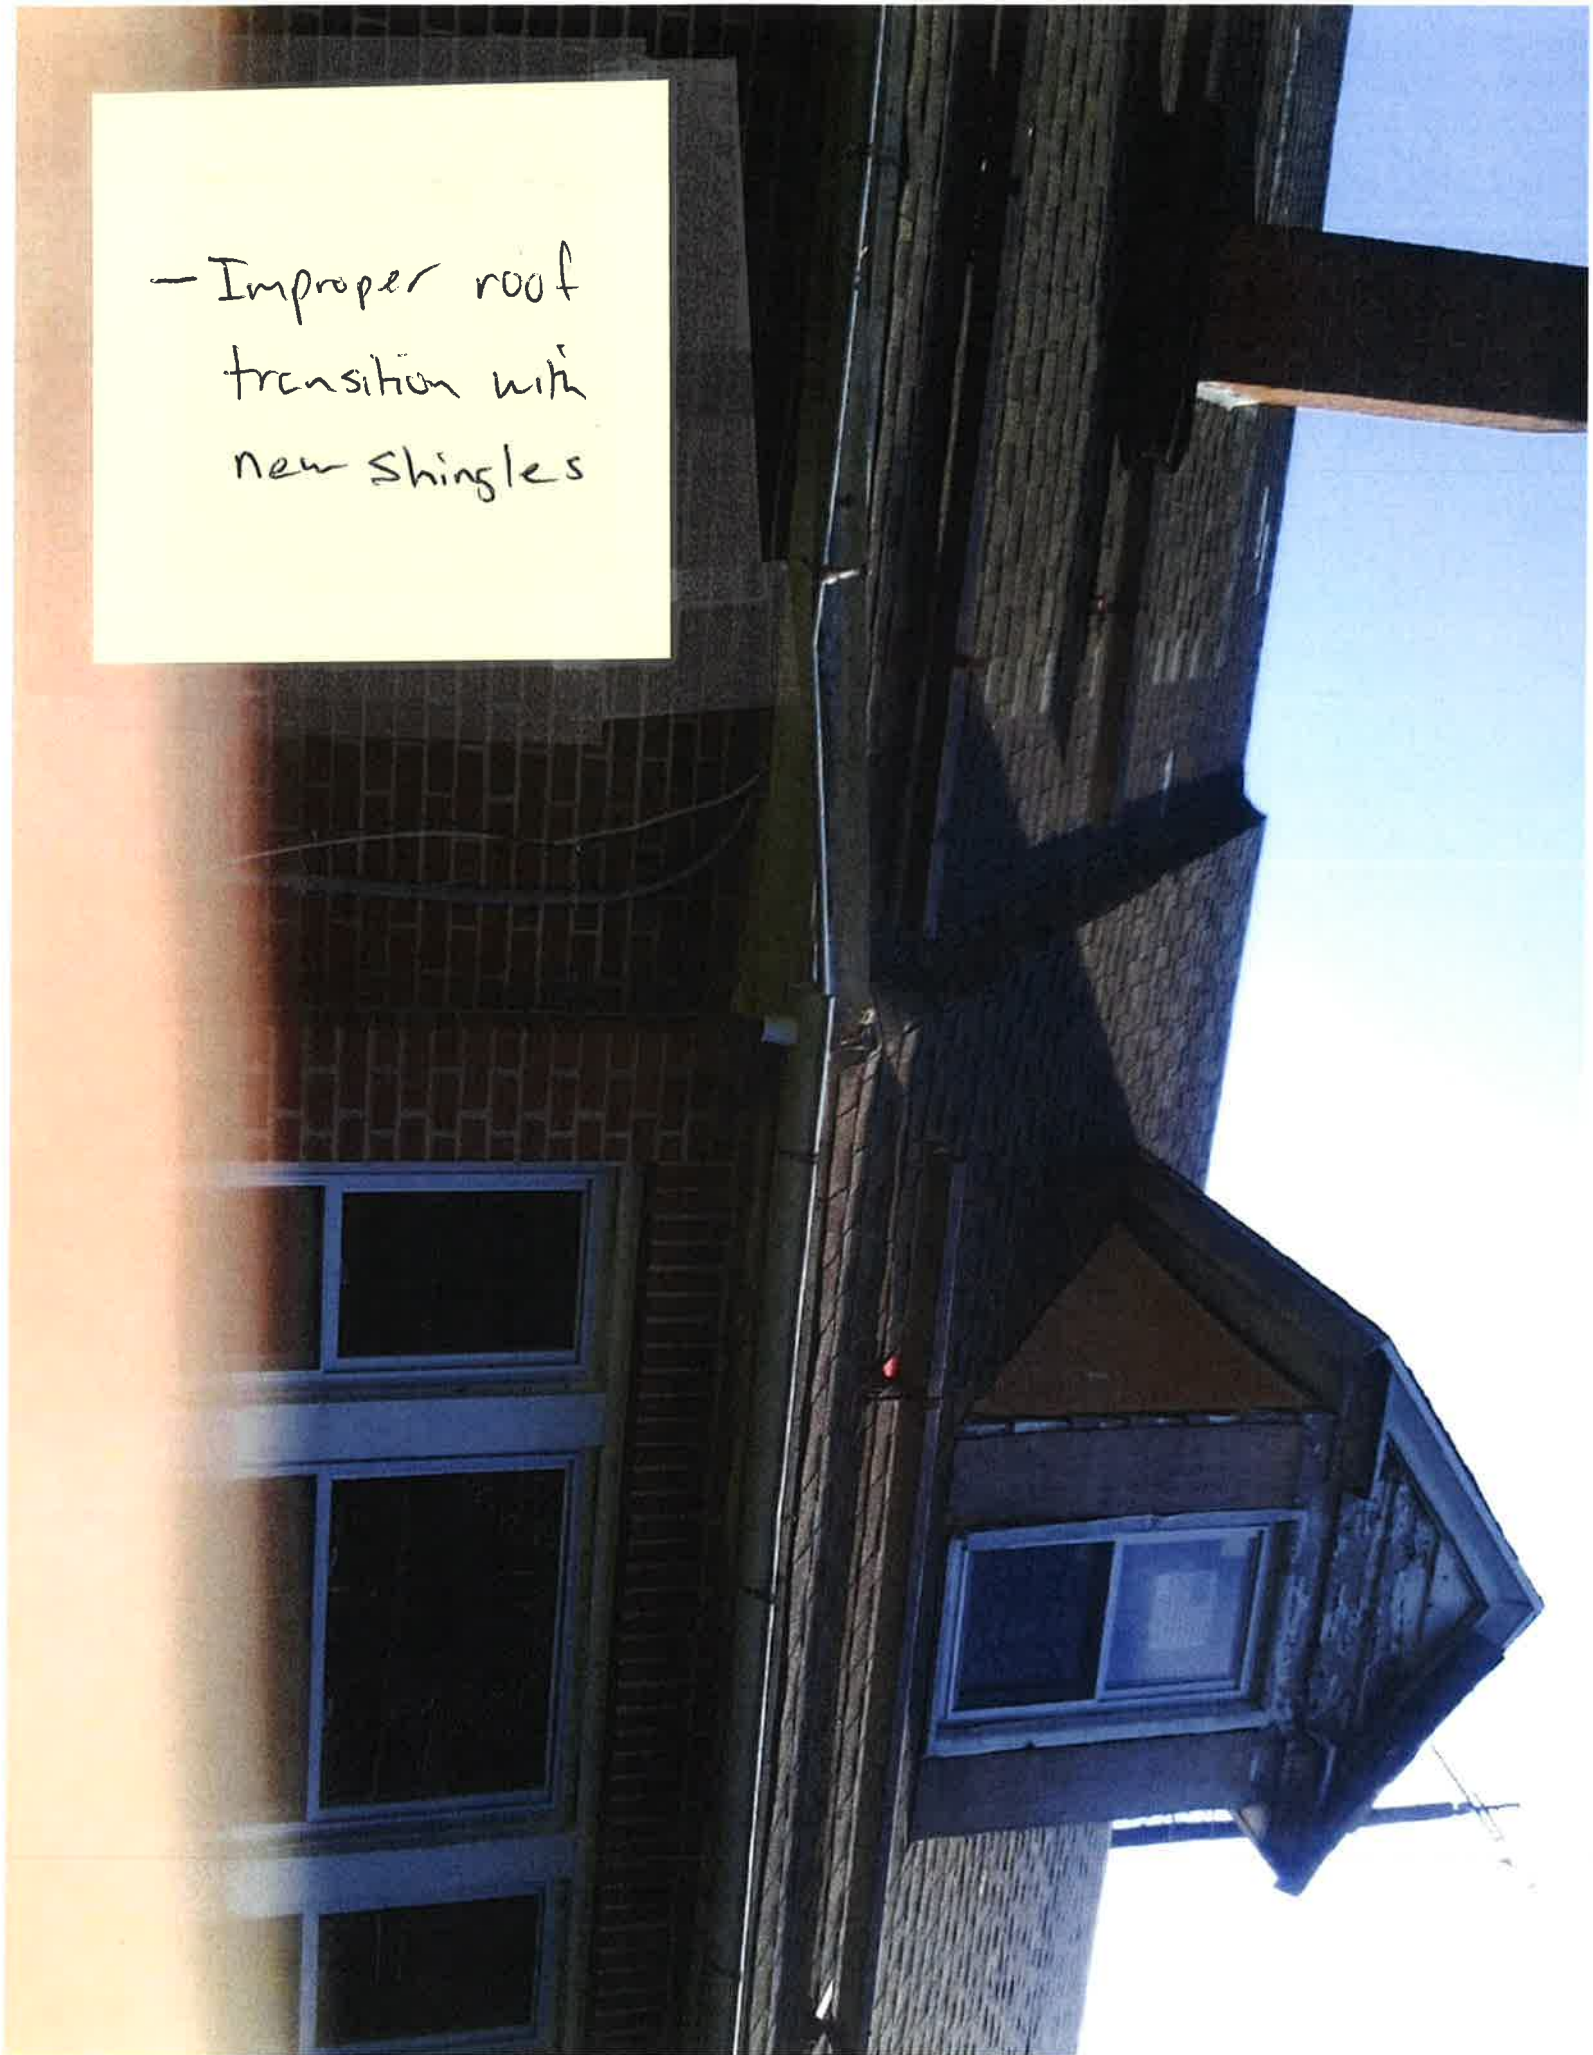 - Improper roof
transition with
new shingles